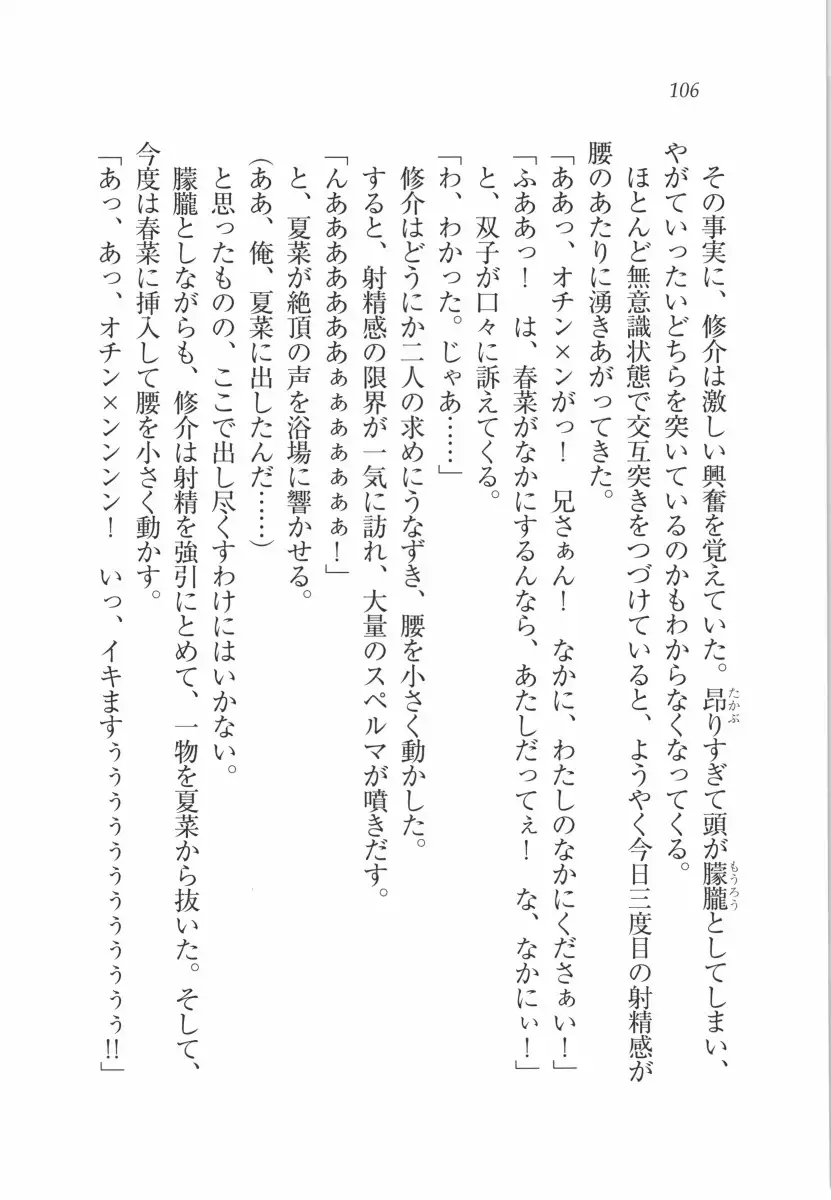 106
その事実に、修介は激しい興奮を覚えていた。昂りすぎて頭が朦朧としてしまい、
やがていったいどちらを突いているのかもわからなくなってくる。
ほとんど無意識状態で交互突きをつづけていると、ようやく今日三度目の射精感が
腰のあたりに湧きあがってきた。
「ああっ、オチン×ンがっ！　兄さぁん！　なかに、わたしのなかにくださぁい！」
「ふああっ！　は、春菜がなかにするんなら、あたしだってぇ！　な、なかにぃ！」
と、双子が口々に訴えてくる。
「わ、わかった。じゃあ……」
修介はどうにか二人の求めにうなずき、腰を小さく動かした。
すると、射精感の限界が一気に訪れ、大量のスペルマが噴きだす。
「んあああああああぁぁぁぁぁぁぁ！」
と、夏菜が絶頂の声を浴場に響かせる。
（ああ、俺、夏菜に出したんだ……）
と思ったものの、ここで出し尽くすわけにはいかない。
朦朧としながらも、修介は射精を強引にとめて、一物を夏菜から抜いた。そして、
今度は春菜に挿入して腰を小さく動かす。
「あっ、あっ、オチン×ンンンン！　いっ、イキますぅぅぅぅぅぅぅぅぅぅぅぅ!!」